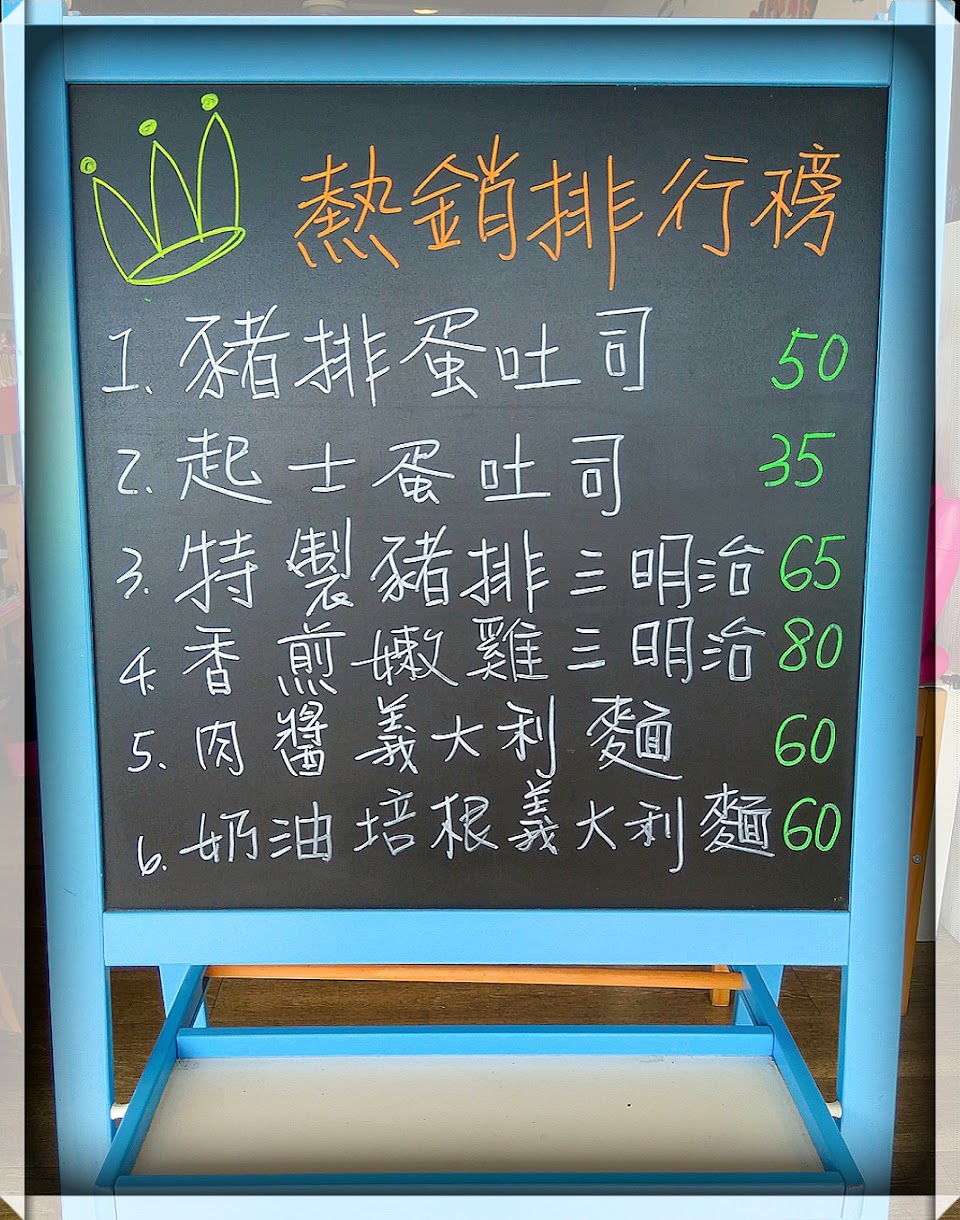 熱銷排行榜
1. 豬排蛋吐司 50
2. 起士蛋吐司 35
3. 特製豬排三明治 65
4. 香煎嫩雞三明治 80
5. 肉醬義大利麵 60
6. 奶油培根義大利麵 60